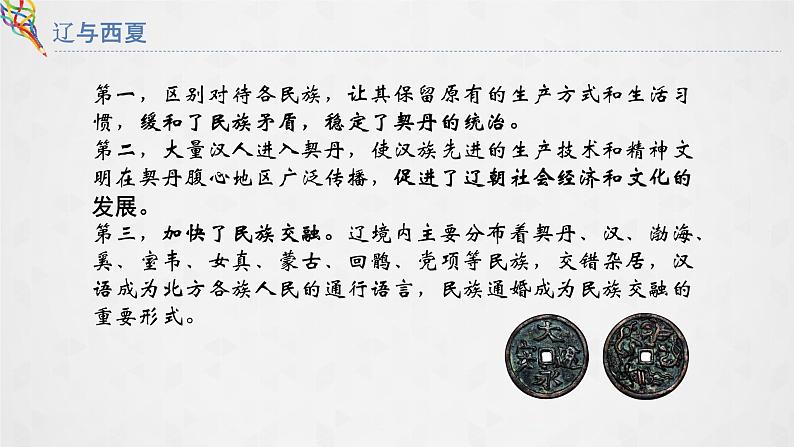 辽与西夏
第一，区别对待各民族，让其保留原有的生产方式和生活习
惯，缓和了民族矛盾，稳定了契丹的统治。
第二，大量汉人进入契丹，使汉族先进的生产技术和精神文
明在契丹腹心地区广泛传播，促进了辽朝社会经济和文化的
发展。
第三，加快了民族交融。辽境内主要分布着契丹、汉、渤海、
奚、室韦、女真、蒙古、回鹘、党项等民族，交错杂居，汉
语成为北方各族人民的通行语言，民族通婚成为民族交融的
重要形式。
大
安
永